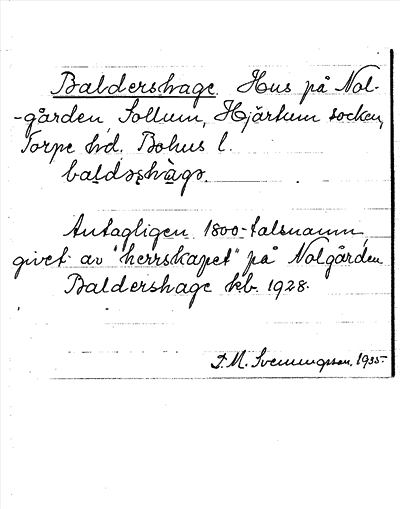 Baldershage. Hus på Nol-
-gården, Sollum, Hjärtum socken,
Torpe hd. Bohus l.
baldǝʂhàgǝ.
Antagligen 1800-talsnamn,
givet av "herrskapet" på Nolgården.
Baldershage kb. 1928.
J. M. Svenningsson. 1935-